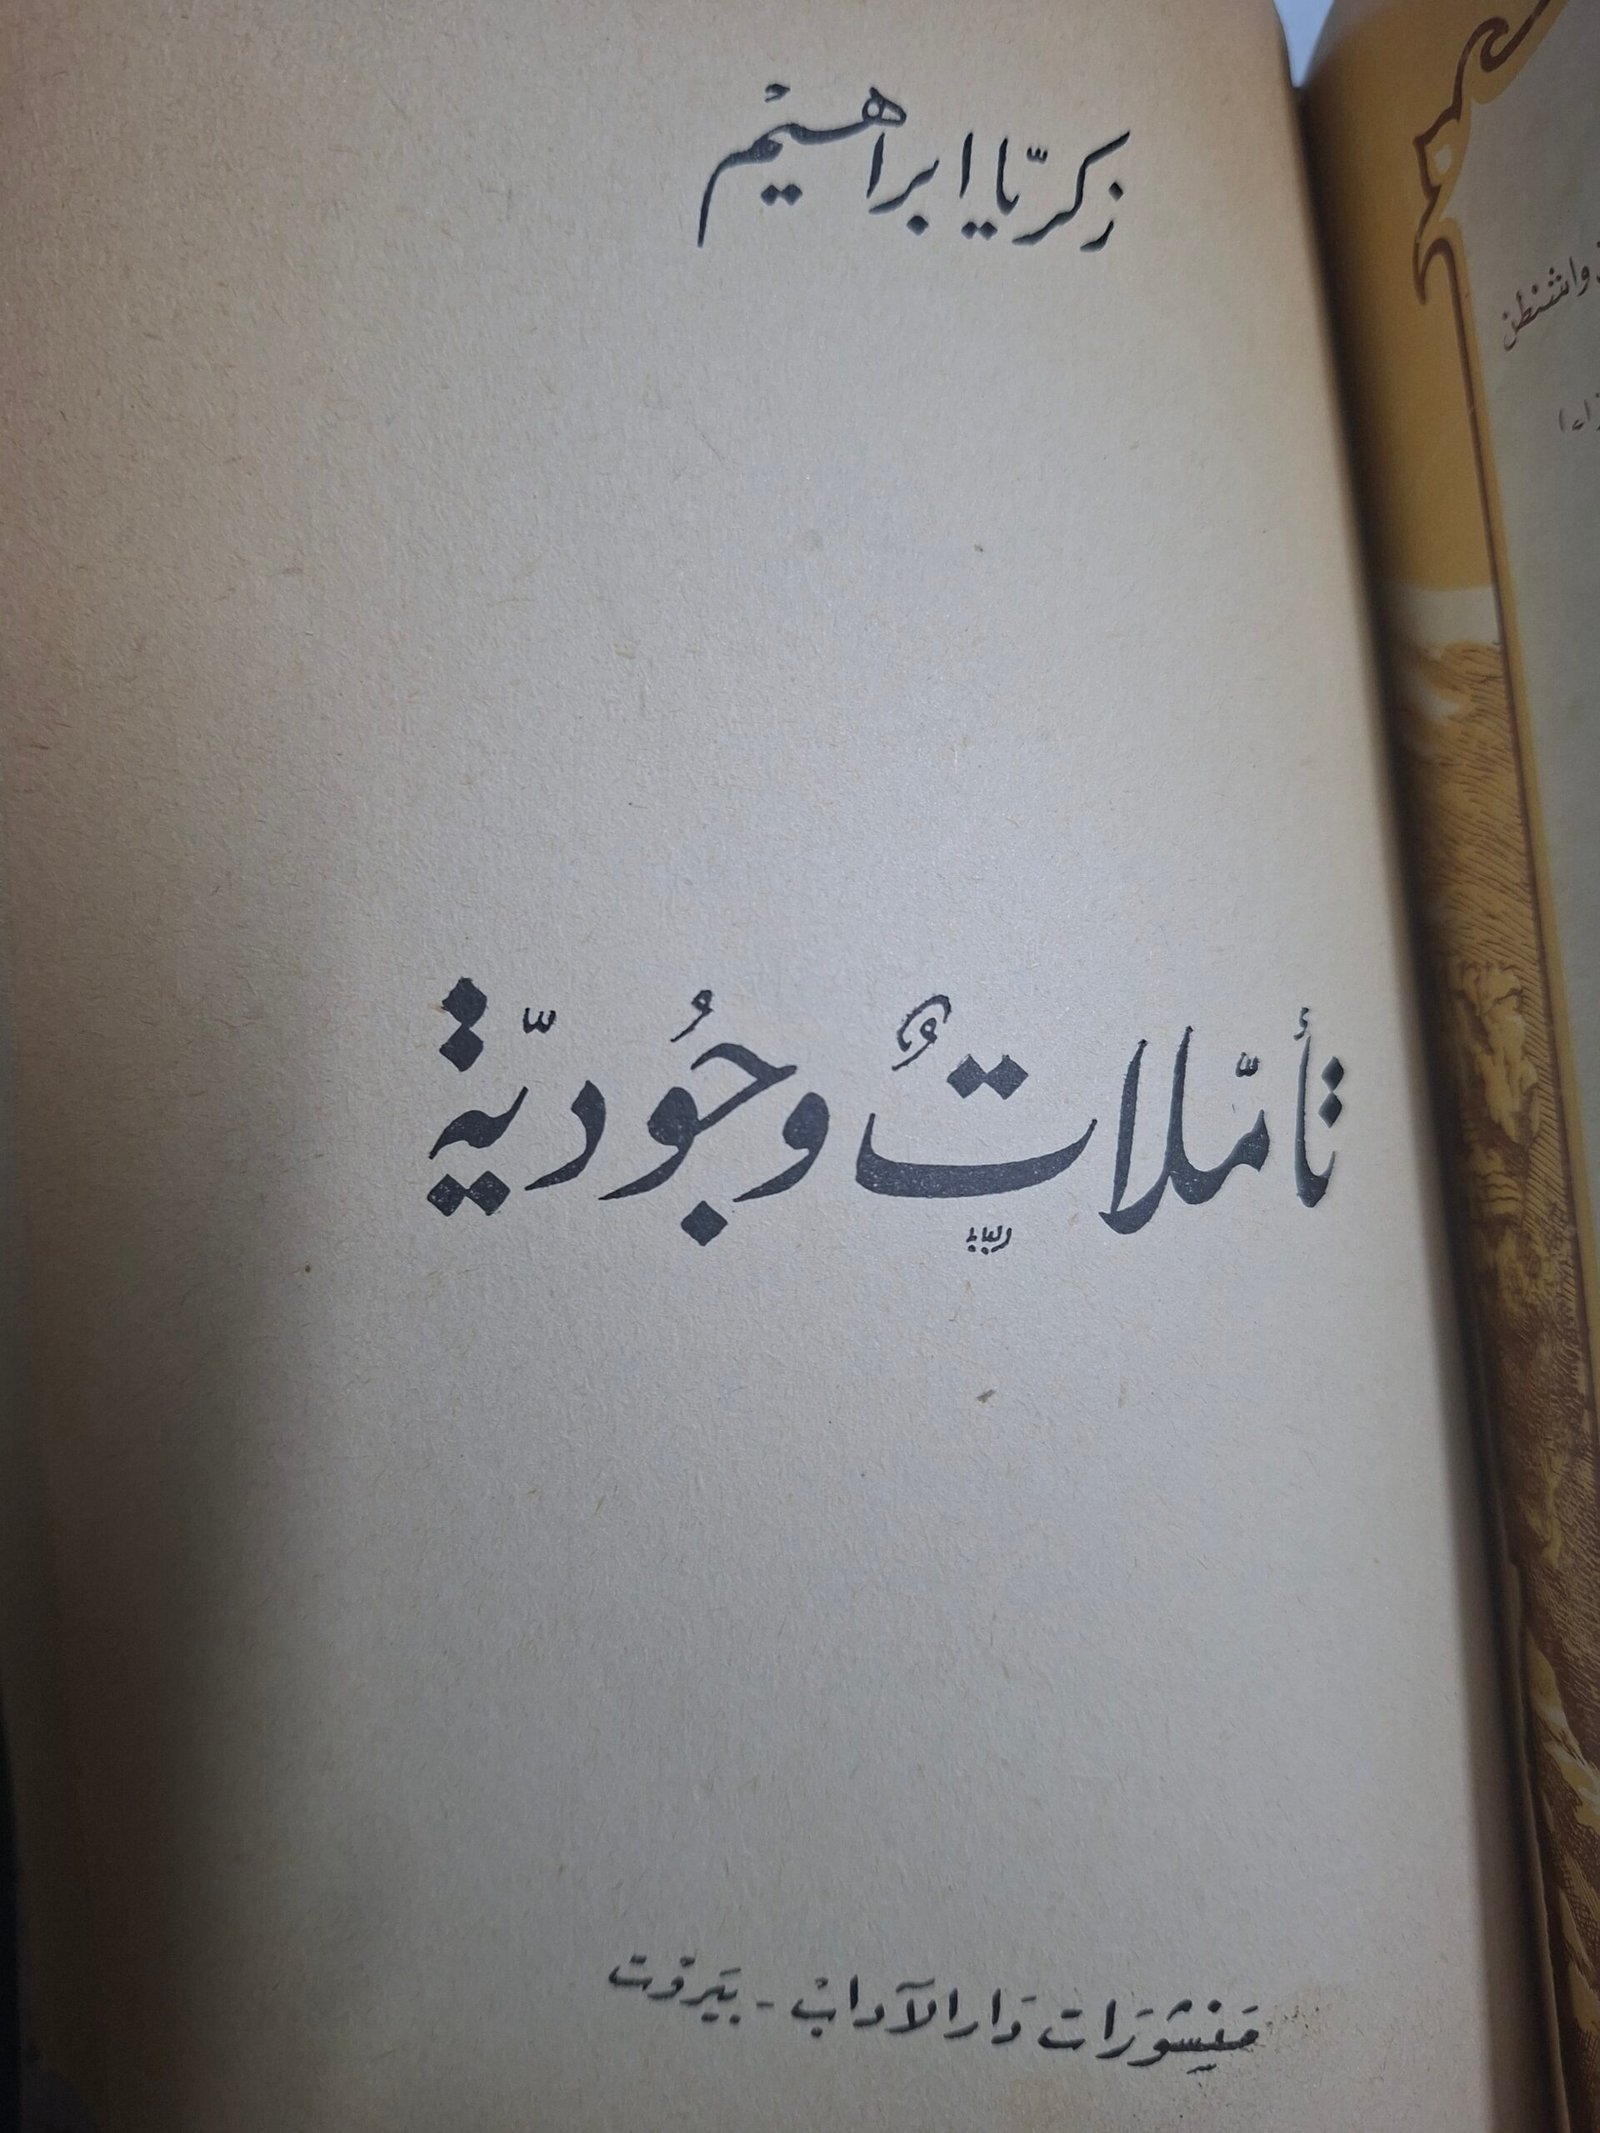 زكريّا ابراهيم
تأمّلاتٌ وجُوديّة
منشورات دار الآداب - بيروت
واشنطن